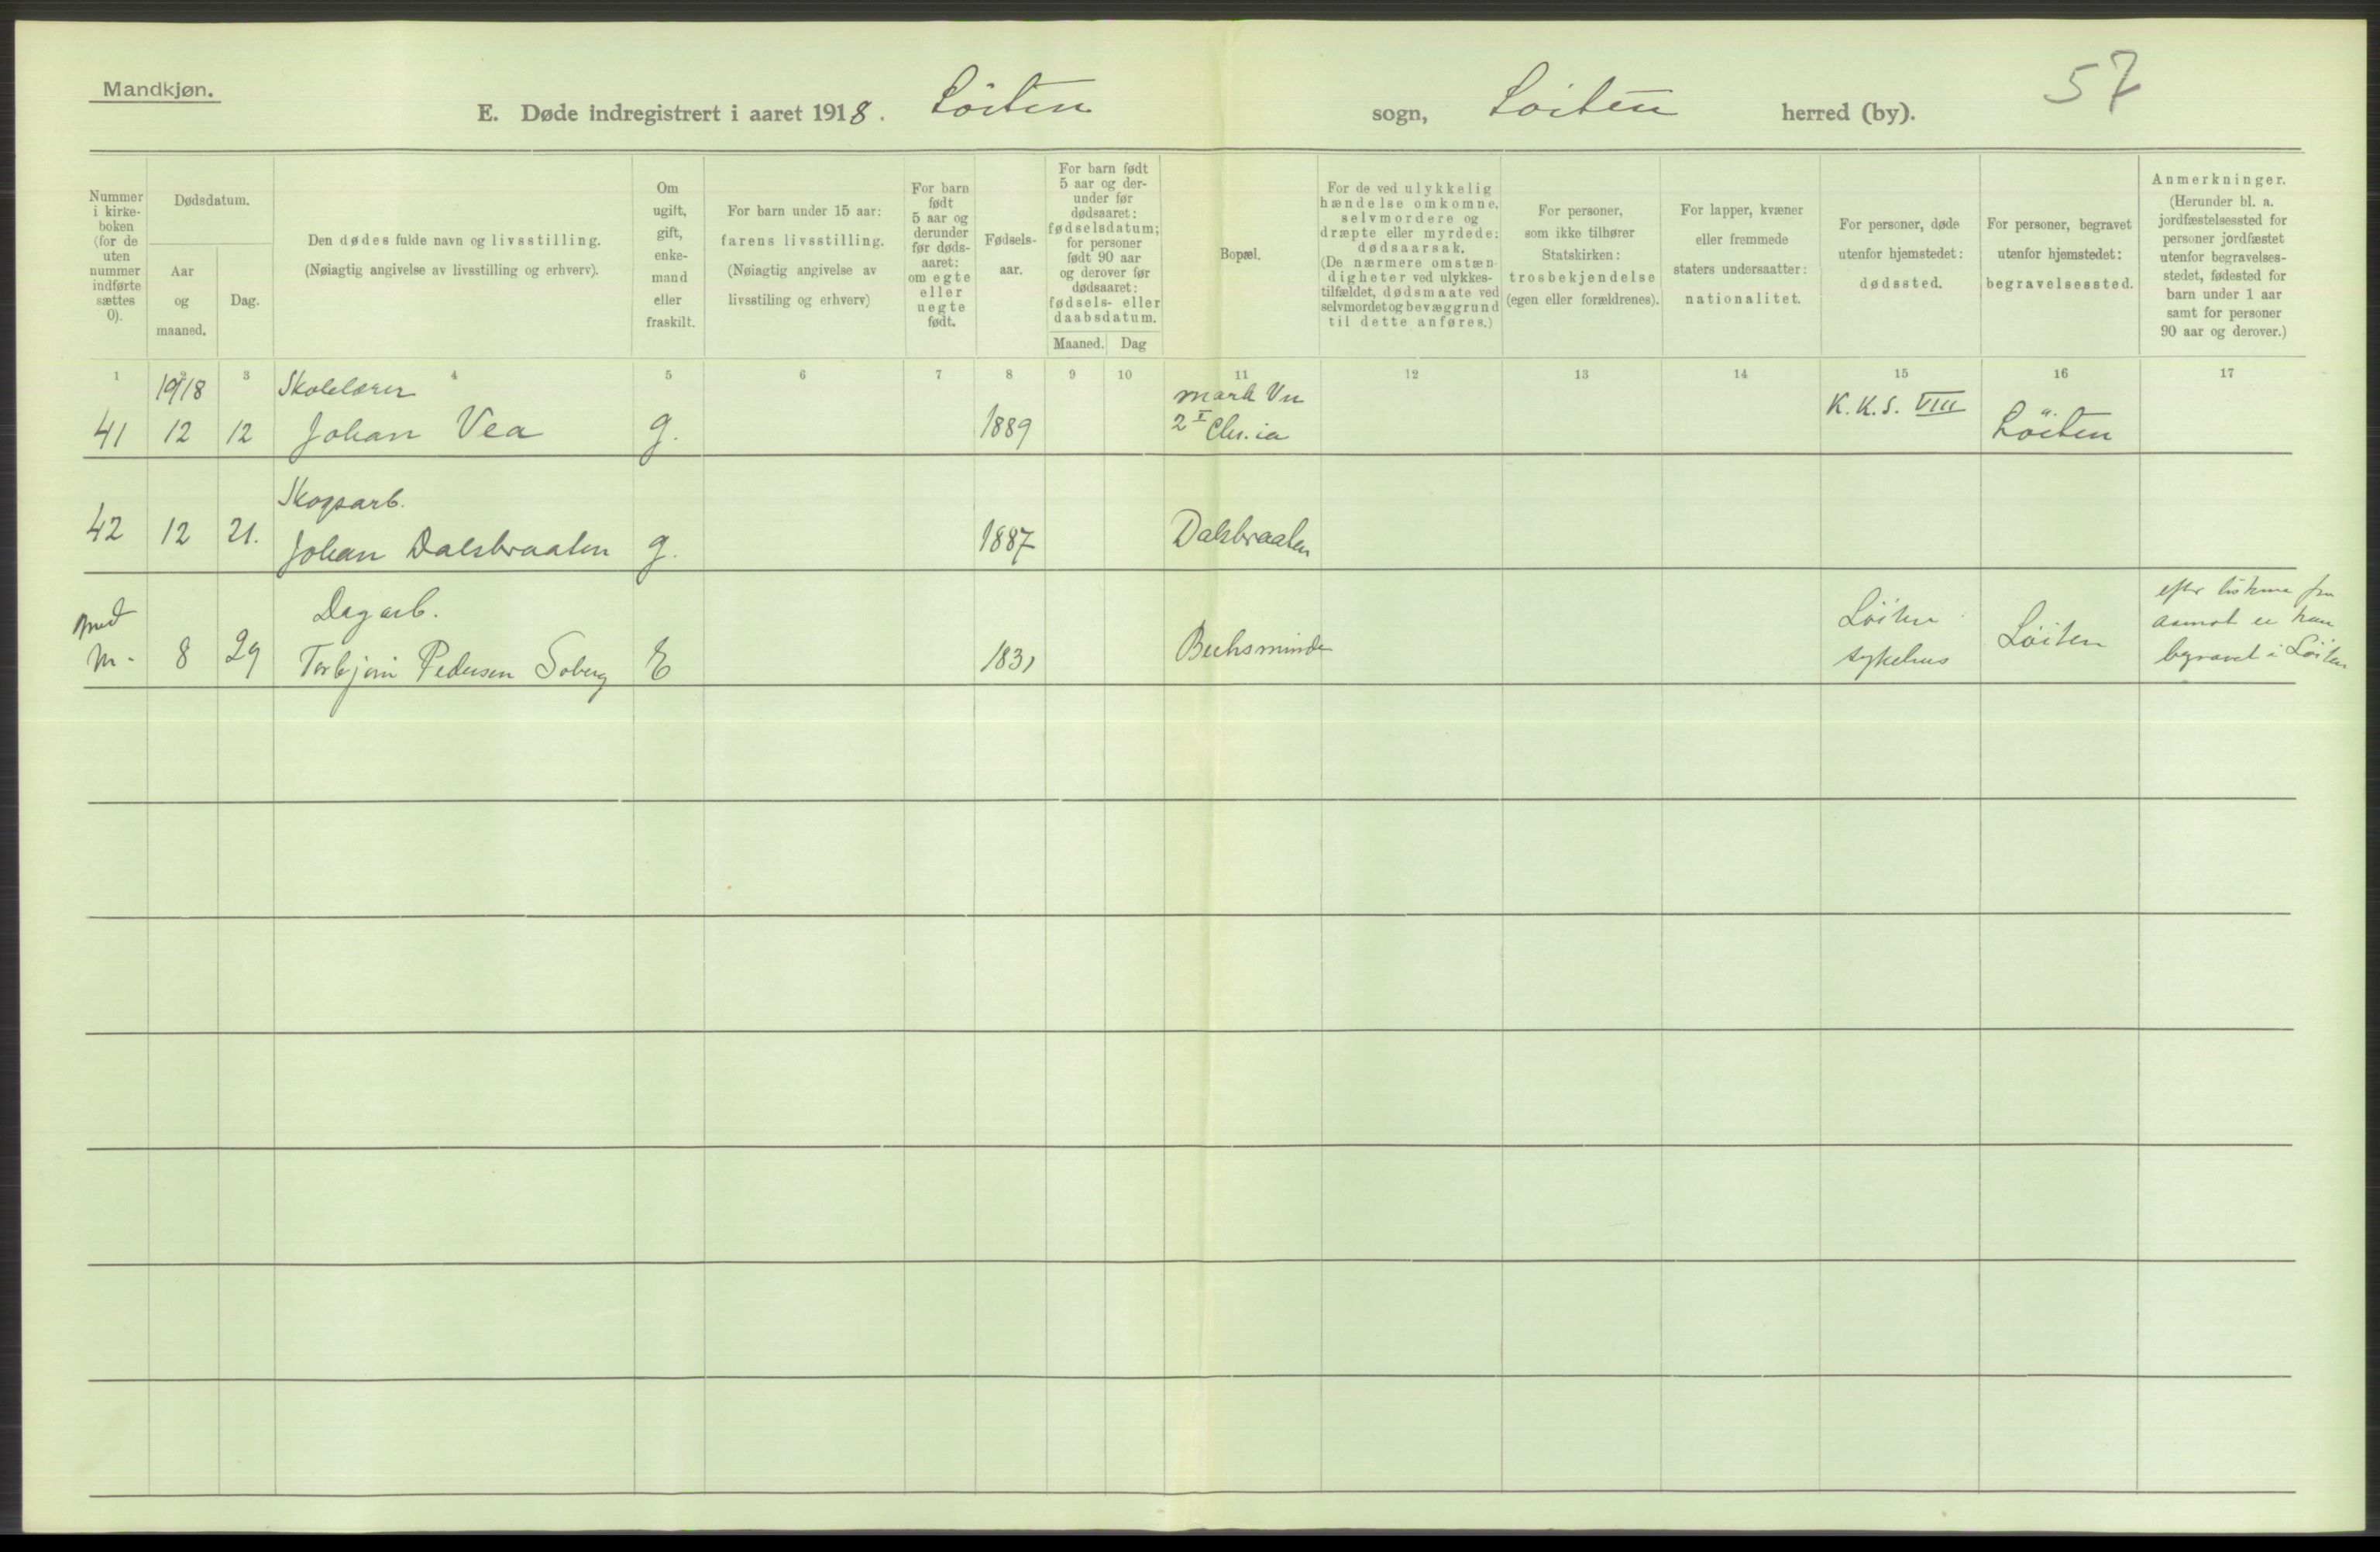 Mandkjøn.
57
E. Døde indregistrert i aaret 1918. Löiten sogn, Löiten herred (by).
Nummer
i kirke-
boken
(for de
uten
nummer
indførte
sættes
0).
Dødsdatum.
Aar
og
maaned.
Dag.
Den dødes fulde navn og livsstilling.
(Nøiagtig angivelse av livsstilling og erhverv).
Om
ugift,
gift,
enke-
mand
eller
fraskilt.
For barn under 15 aar:
farens livsstilling.
(Nøiagtig angivelse av
livsstiling og erhverv)
For barn
født
5 aar og
derunder
før døds-
aaret:
om egte
eller
uegte
født.
Fødsels-
aar.
For barn født
5 aar og der-
under før
dødsaaret:
fødselsdatum;
for personer
født 90 aar
og derover før
dødsaaret:
fødsels- eller
daabsdatum.
Maaned. Dag
Bopæl.
For de ved ulykkelig
hændelse omkomne,
selvmordere og
dræpte eller myrdede:
dødsaarsak.
(De nærmere omstæn-
digheter ved ulykkes-
tilfældet, dødsmaate ved
selvmordet og bevæggrund
til dette anføres.)
For personer,
som ikke tilhører
Statskirken:
trosbekjendelse
(egen eller forældrenes).
For lapper, kvæner
eller fremmede
staters undersaatter:
nationalitet.
For personer, døde
utenfor hjemstedet:
dødssted.
For personer, begravet
utenfor hjemstedet:
begravelsessted.
Anmerkninger.
(Herunder bl. a.
jordfæstelsessted for
personer jordfæstet
utenfor begravelses-
stedet, fødested for
barn under 1 aar
samt for personer
90 aar og derover.)
1 2 3 4 5 6 7 8 9 10 11 12 13 14 15 16 17
1918 Skolelærer mark Vn K.K.S. VIII
41 12 12 Johan Vea g. 1889 2 I Chr.ia Löiten
Skogsarb.
42 12 21. Johan Dalsbraaten g. 1887 Dalsbraaten
Dagarb. Löiten efter listerne fra
M. 8 29 Torbjørn Pedersen Soberg E 1831 Bechsminde sykehus Löiten aamot er han
begravet i Löiten